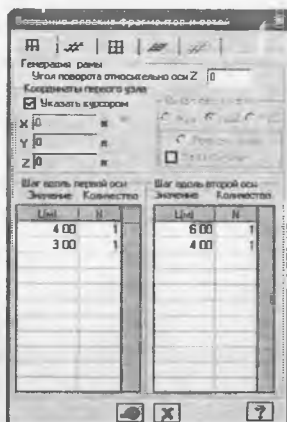 Создание плоских фрагментов и сетей
Генерация рамы
Угол поворота относительно оси Z 0
Координаты первого узла
Указать курсором
X 0 м
Y 0 м
Z 0 м
Шаг вдоль первой оси
Значение Количество
L(м) N
4.00 1
3.00 1
Шаг вдоль второй оси
Значение Количество
L(м) N
6.00 1
4.00 1
?